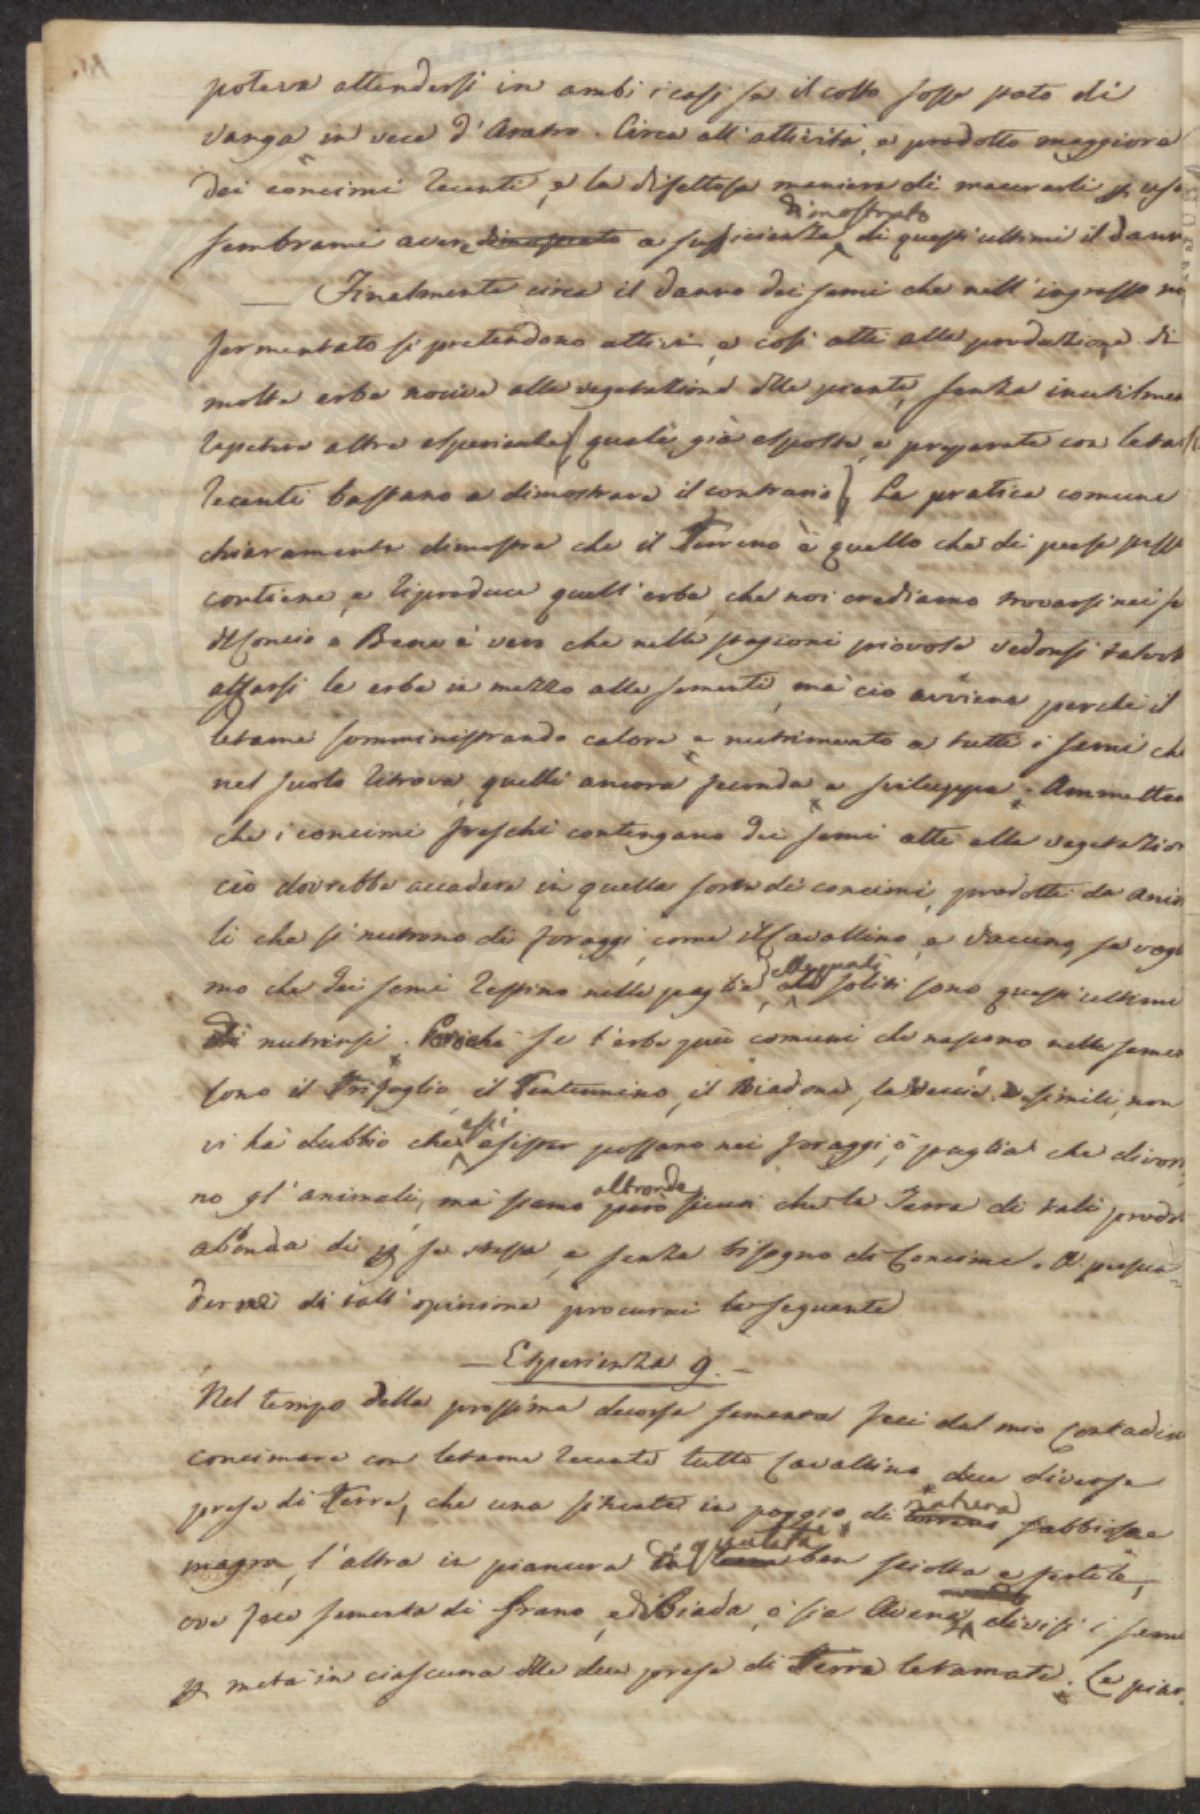 poteva attendersi in ambi i casi se il cotto fosse stato di
vanga in vece d'Aratro. Circa all'attività, e prodotto maggiore
dei concimi recenti, e la difettosa maniera di macerarli p uso
dimostrato
sembrami avere dimostrato a sufficienza di questi ultimi il dann
— Finalmente circa il danno dei semi che nell'ingrasso no
fermentato si pretendono attivi e così atti alla produzione di
molta erba nociva alla vegetazione dlle piante, senza inutilmen
repetere altre esperienze (quali già esposte, e preparate con leta
recenti bastano a dimostrare il contrario) La pratica comune
chiaramente dimostra che il Terreno è quello che di per se stess
contiene, e riproduce quell'erbe, che noi crediamo trovarsi nei se
dl Concio. Bene è vero che nelle stagioni piovose vedonsi talvolt
alzarsi le erbe in mezzo alle sementi, ma ciò avviene perchè il
letame somministrando calore e nutrimento a tutti i semi che
nel suolo ritrova, quelli ancora feconda e sviluppa. Ammetten
che i concimi freschi contengano dei semi atti alla vegetazion
ciò dovrebbe accadere in quella sorta di concimi, prodotti da anim
li che si nutrono di foraggi, come il Cavallino, e vaccino, se vogl
dlle quali
mo che dei semi restino nelle paglie, soliti sono quest'ultimi
di nutrirsi. Perchè se l'erbe più comuni che nascono nelle semen
sono il Trifoglio, il Tentennino, il Biadone, la Veccia e simili, non
essi
vi ha dubbio che esister possano nei foraggi, o paglia che divor
altronde
no gl'animali, ma siamo però sicuri che la Terra di tali prodo
abonda di p se stessa, e senza bisogno di Concime. A persua
dermi di tall'opinione procurai la seguente
— Esperienza 9. —
Nel tempo della prossima decorsa sementa feci dal mio Contadin
concimare con letame recente tutto Cavallino due diverse
natura
prese di Terra, che una situata in poggio di terreno sabbiosa e
qualità
magra, l'altra in pianura di terra ben sciolta e fertile,
ove feci sementa di Grano, e di Biada, o sia Avena, divisi i semi
p metà in ciascuna dlle due prese di Terra letamate. Le pian